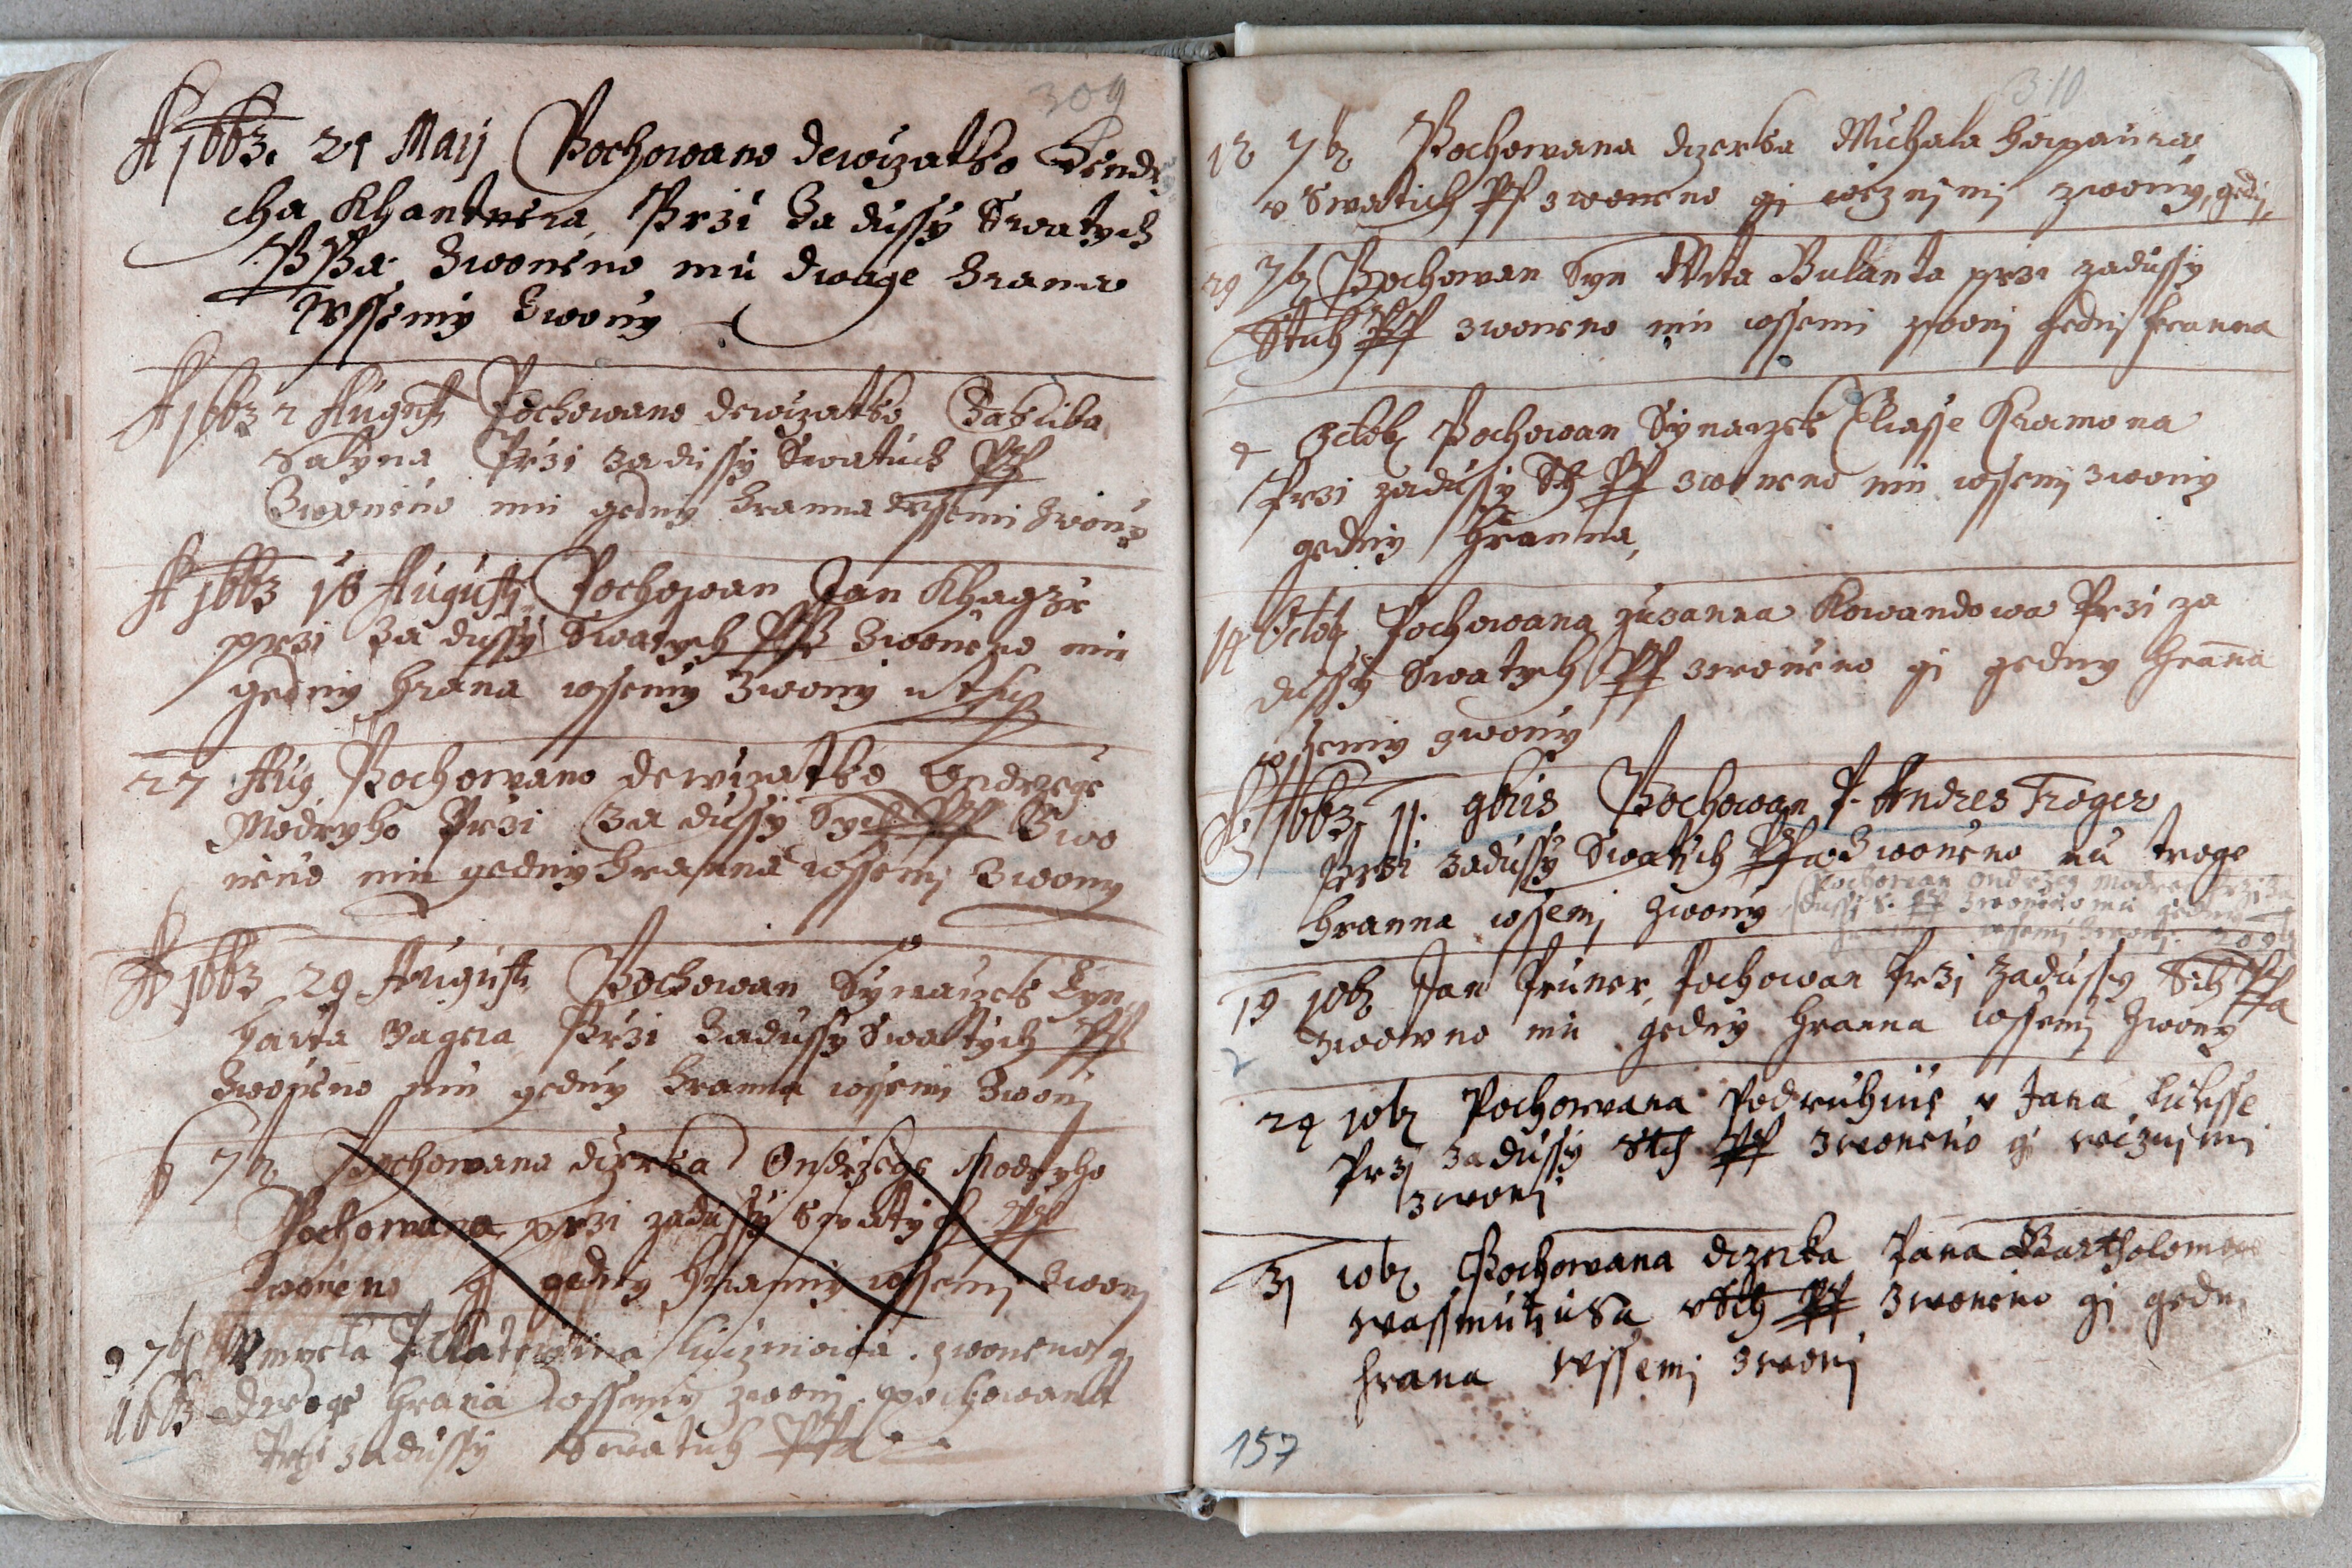 309
A 1663. 21 Maij Pochowano dewizatko Hendr
cha Khantnera, Przi Za dussy Swatych
PPa. Zwoneno mu dwage hrana
wssemy Zwony
A 1663 2 Augusti Pochowano dewizatko Jakuba
Przi Zadussy Swatich PP
Zwoneno mu gedny hranna wssemi Zwony
A 1663 18 Augusti Pochowan Jan Khagzir
przi Za dussy Swatych PP Zwoneno mu
gedny hrana wssemy Zwony
27 Aug Pochowano dewizatko Ondrzege
Modryho Przi Za dussy Sych PP Zwo
neno mu gedny hranna wssemj Zwony
A 1663 29 Augusti Pochowan Synaczek Lyn
harta Yagera Przi Zadussy Swattych PP
Zwoneno mu gedny hranna wssemi Zwonj
6 7b Pochowana dczerka Ondrzege Modryho
Pochowana przi zadussy Swatych PP
Zwoneno gj gedny hranny wssemj Zwonj
9 7b Vmrzela Katerzina zwoneno gj
1663 dwoge hrana wssemy zwonj. pochowana
Przi zadussy Swatich PPa
310
12 7b Pochowana dczerka Michala
v Swatich PP zwoneno gj wicznimj zwony,
29 7b Pochowan Syn Wita Bulanta przi zadussy
Stich PP zwoneno mu wssemi zwonj gednj hranna
4 Octob Pochowan Synaczek Eliasse Kramona
Przi zadussy Sth PP zwoneno mu wssemj zwony
gedny hranna,
14 Octob Pochowana Zuzanna Kowandowa Przi za
dussy Swatych PP zwoneno gi gedny hrana
wssemy zwony
A. 1663. 11. 9bris Pochowan P. Andres Troger
Przi zadussy Swatich PP Zwoneno mu troge
hranna wssemj zwony
Pochowan Ondrzeg Modrej Przi Za
dussj S. PP Zwoneno mu gedny
wssemj Zwonj.
19 10b Jan Pruner, Pochowan Przj Zadussy Sth PPa
Zwoneno mu gedny hranna wssemj Zwony
24 10b Pochowana Podruhine v Jana Luksse
Przj Zadussy Stch PP zwoneno gi wicznimi
zwonj
31 10b Pochowana dczerka Pana Bartholomeo
v Sch PP Zwoneno gj gedn.
hrana wssemj zwonj
157